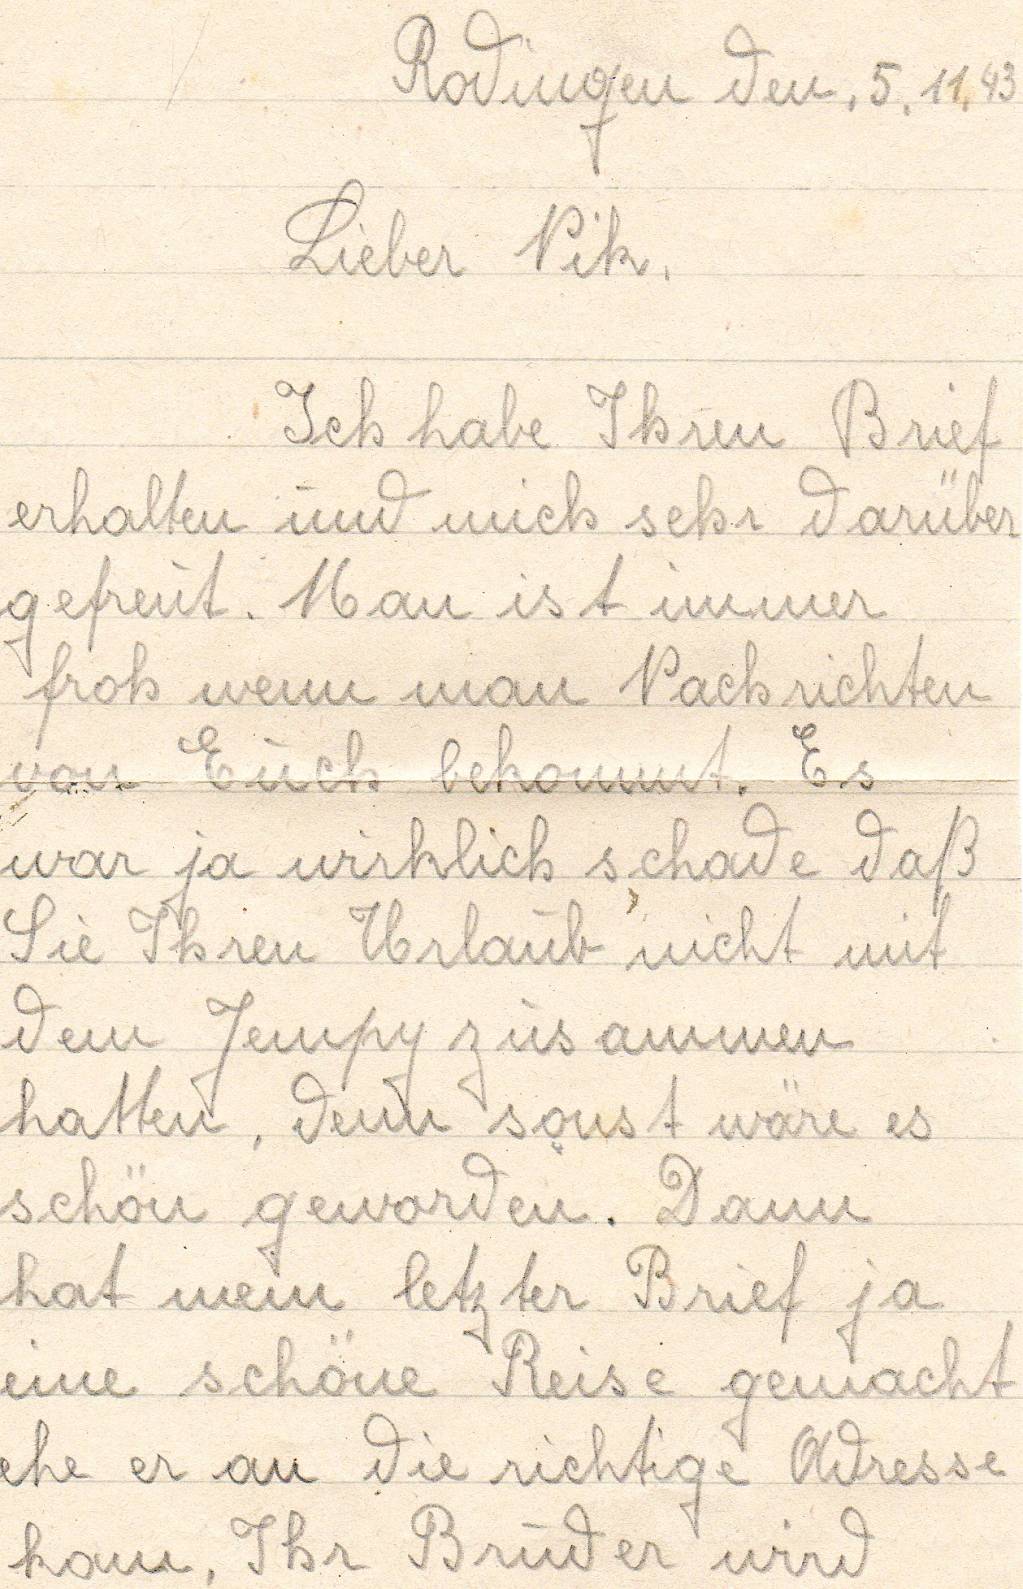 Rodingen den, 5. 11. 43
Lieber Nik.
Ich habe Ihren Brief
erhalten und mich sehr darüber
gefreut. Man ist immer
froh wenn man Nachrichten
von Euch bekommt. Es
war ja wirklich schade daß
Sie Ihren Urlaub nicht mit
dem Jempy zusammen
hatten, denn sonst wäre es
schön geworden. Dann
hat mein letzter Brief ja
eine schöne Reise gemacht
ehe er an die richtige Adresse
kam. Ihr Bruder wird